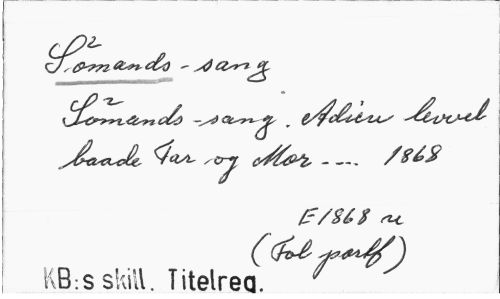 Sömands-sang
Sömands-sang. Adieu levvel
baade Far og Mor ---- 1868
E 1868 u
(Fol portf)
KB:s skill. Titelreg.